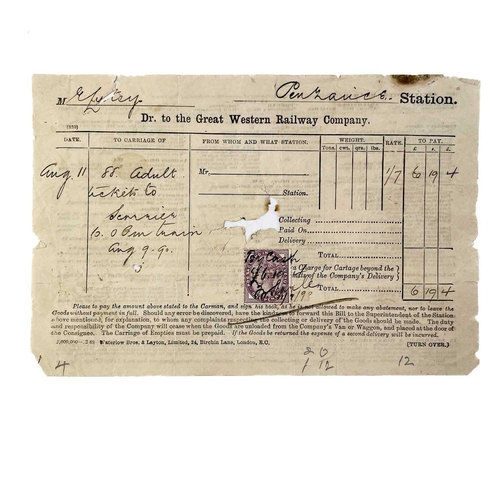 Penzance Station.
Dr. to the Great Western Railway Company.
DATE. TO CARRIAGE OF FROM WHOM AND WHAT STATION. WEIGHT. RATE. TO PAY.
Tons. cwt. qrs. lbs. £. s. d.
Aug. 11 88 Adult Mr. 1/7 6 19 4
tickets to Station.
Scorrier Collecting
6.0 Pm train Paid On
Aug 9. 90. Delivery
TOTAL
a Charge for Cartage beyond the
y of the Company's Delivery
TOTAL 6 19 4
Please to pay the amount above stated to the Carman, and sign his book, as he is not allowed to make any abatement, nor to leave the
Goods without payment in full. Should any error be discovered, have the kindness to forward this Bill to the Superintendent of the Station
above mentioned, for explanation, to whom any complaints respecting the collecting or delivery of the Goods should be made. The duty
and responsibility of the Company will cease when the Goods are unloaded from the Company's Van or Waggon, and placed at the door of
the Consignee. The Carriage of Empties must be prepaid. If the Goods be returned the expense of a second delivery will be incurred.
Waterlow Bros. & Layton, Limited, 24, Birchin Lane, London, E.C. (TURN OVER.)
1 4 1 12 12